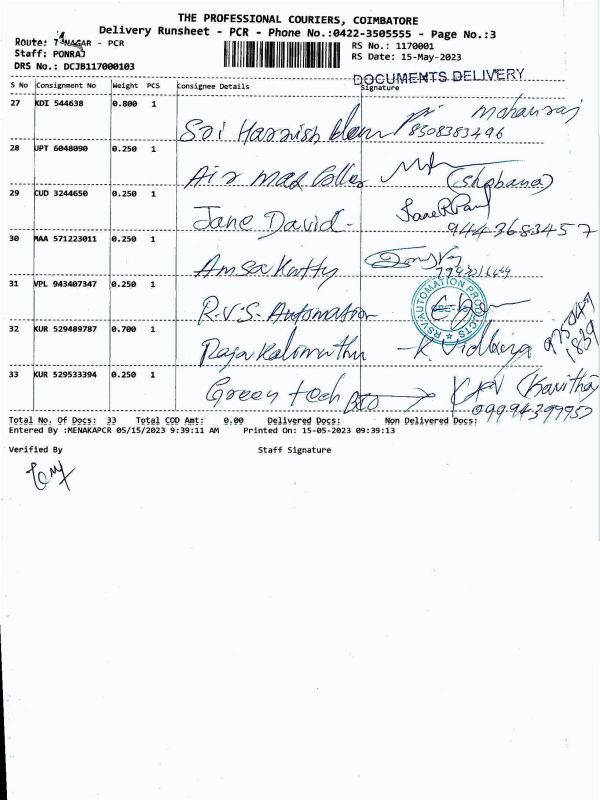 THE PROFESSIONAL COURIERS, COIMBATORE
Delivery Runsheet - PCR - Phone No.:0422-3505555 - Page No.:3
Route: T NAGAR - PCR RS No.: 1170001
Staff: PONRAJ RS Date: 15-May-2023
DRS No.: DCJB117000103
DOCUMENTS DELIVERY
S No Consignment No Weight PCS Consignee Details Signature
27 KDI 544638 0.800 1 Sri Harnish Mohanraj
8508383496
28 UPT 6048090 0.250 1 Air mad (Shobana)
29 CUD 3244650 0.250 1 Jane David - 9443683457
30 MAA 571223011 0.250 1 Amsa Kutty
31 VPL 943407347 0.250 1 R.V.S. Automation
RSV AUTOMATION PRODUCTS
32 KUR 529489787 0.700 1 Raja Kalimuthu K.
33 KUR 529533394 0.250 1 Green tech (Kavitha)
Total No. Of Docs: 33 Total COD Amt: 0.00 Delivered Docs: Non Delivered Docs:
Entered By :MENAKAPCR 05/15/2023 9:39:11 AM Printed On: 15-05-2023 09:39:13
Verified By Staff Signature